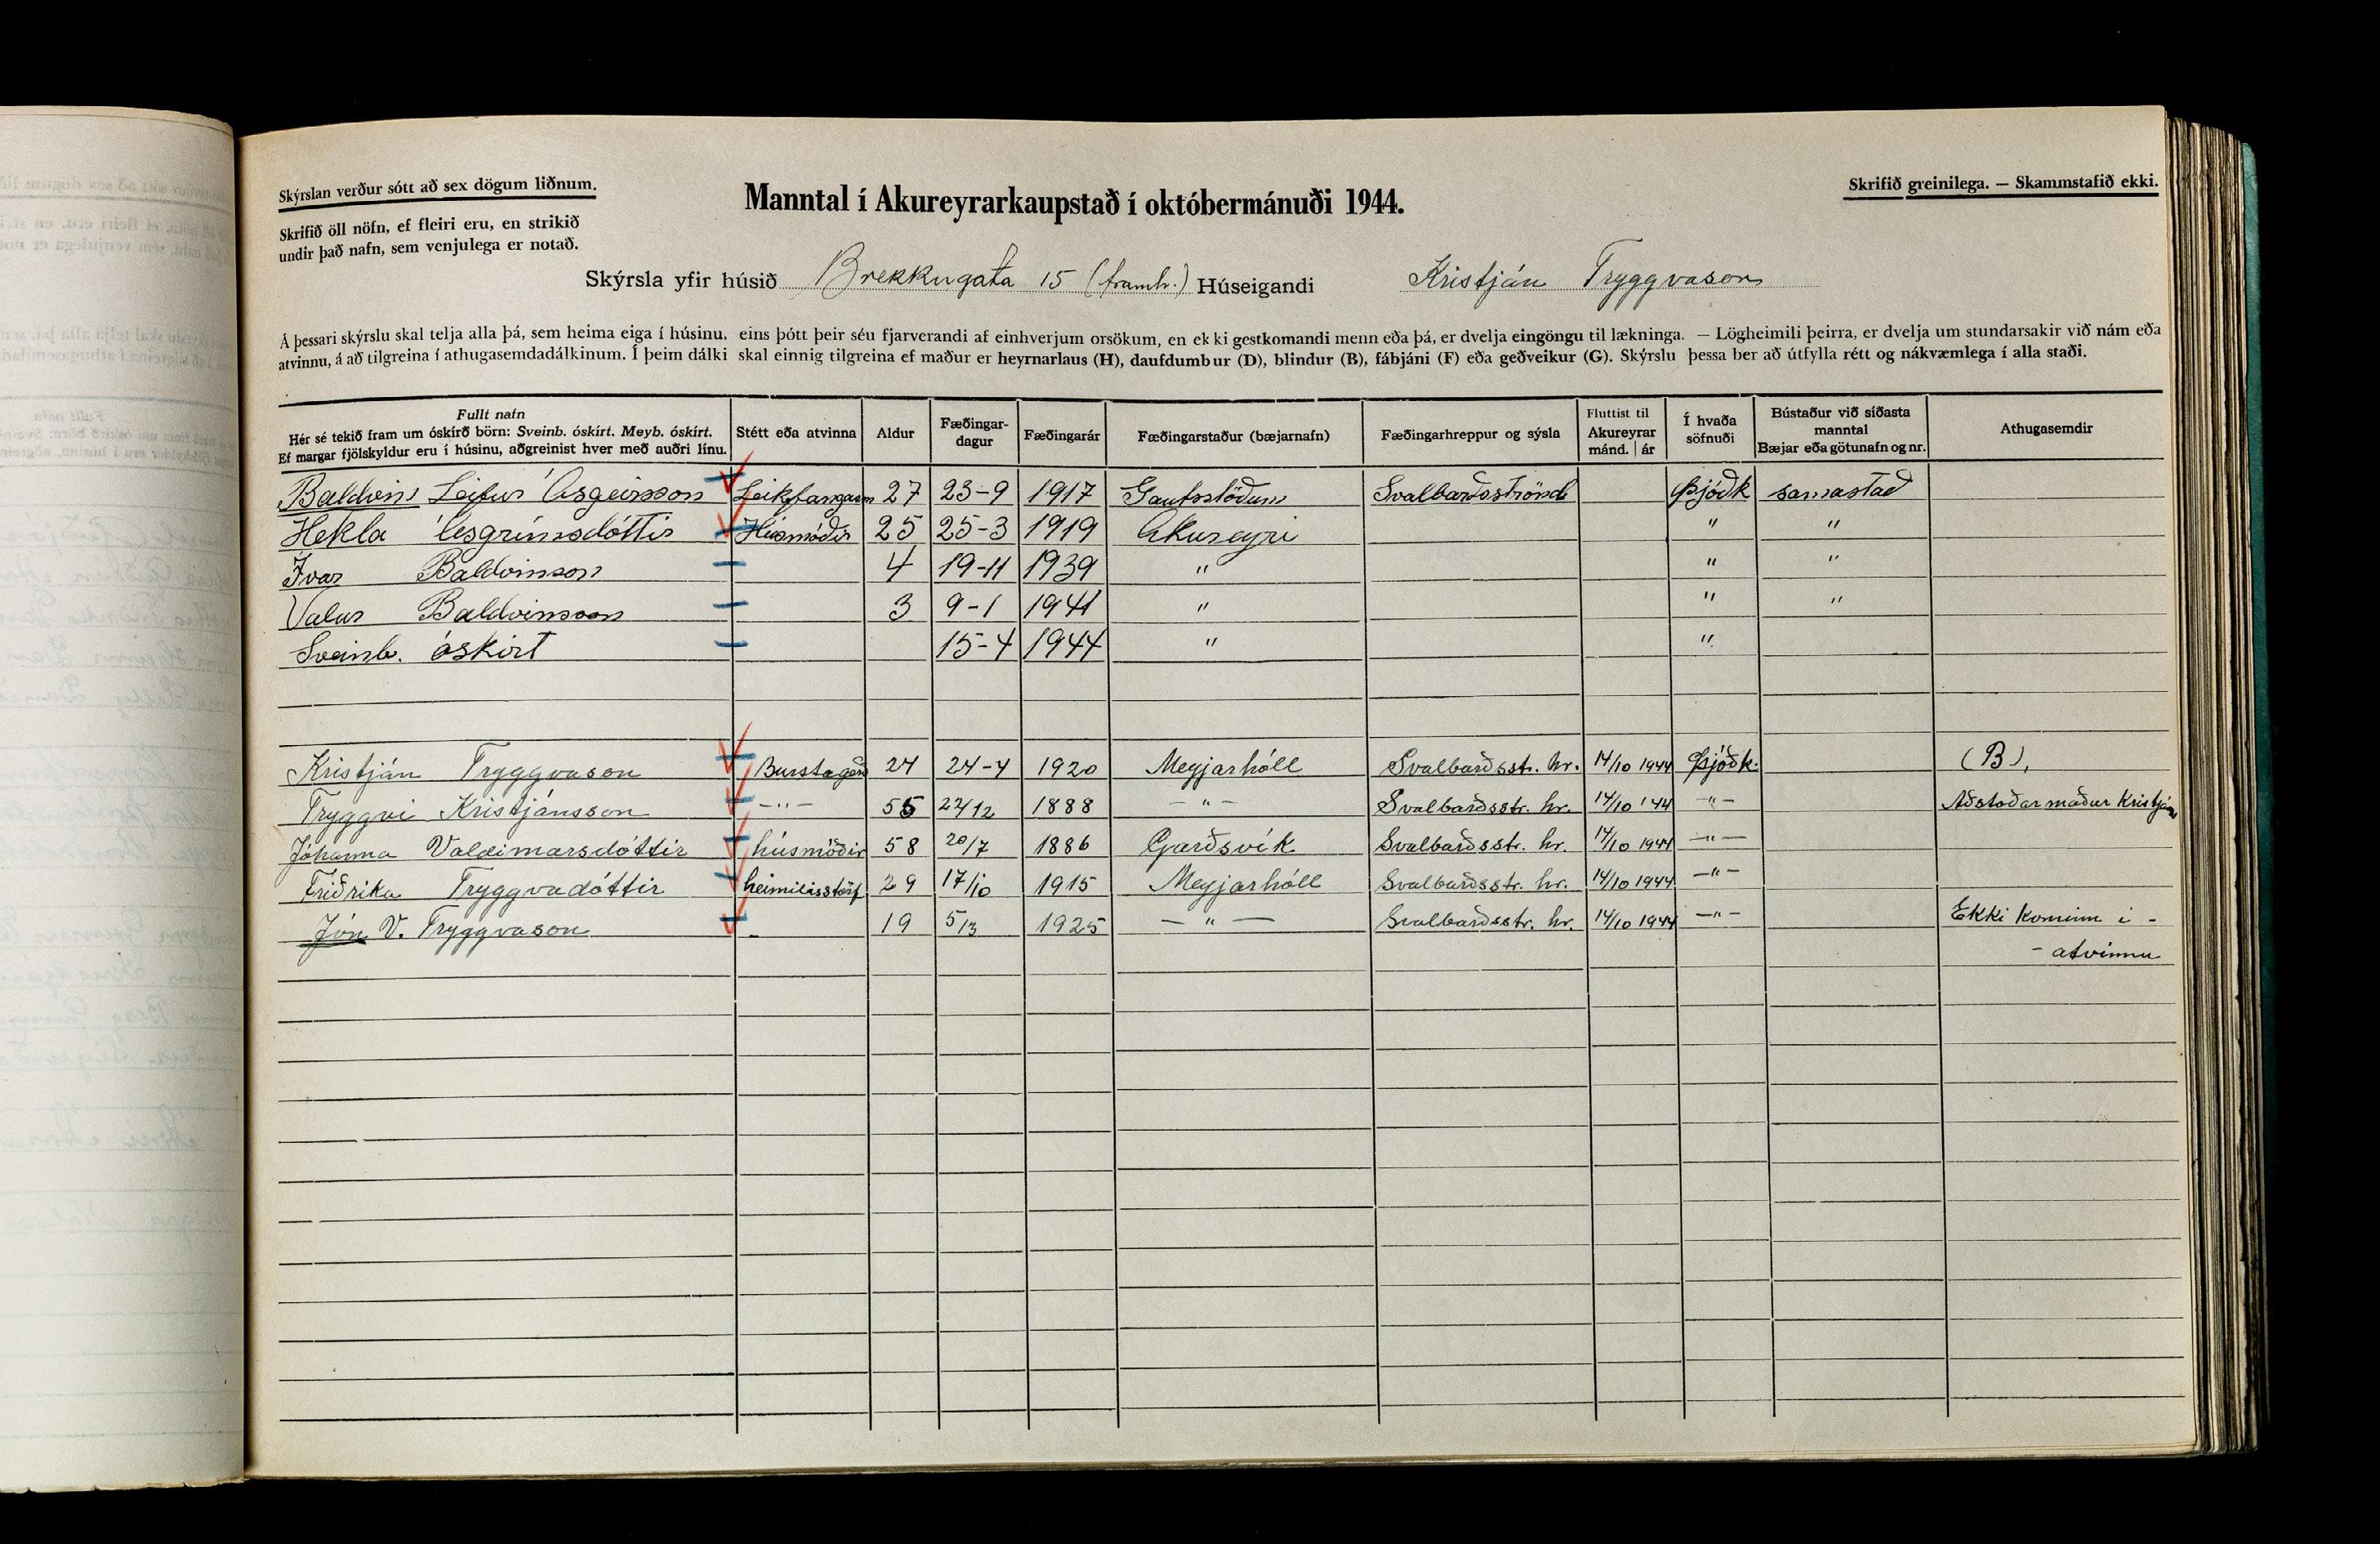 Skýrslan verður sótt að sex dögum liðnum.
Skrifið öll nöfn, ef fleiri eru, en strikið
undir það nafn, sem venjulega er notað.
Manntal í Akureyrarkaupstað í októbermánuði 1944.
Skrifið greinilega. — Skammstafið ekki.
Skýrsla yfir húsið Brekkugata 15 (framh.) Húseigandi Kristján Tryggvason
Á þessari skýrslu skal telja alla þá, sem heima eiga í húsinu, eins þótt þeir séu fjarverandi af einhverjum orsökum, en ekki gestkomandi menn eða þá, er dvelja eingöngu til lækninga. — Lögheimili þeirra, er dvelja um stundarsakir við nám eða
atvinnu, á að tilgreina í athugasemdadálkinum. Í þeim dálki skal einnig tilgreina ef maður er heyrnarlaus (H), daufdumbur (D), blindur (B), fábjáni (F) eða geðveikur (G). Skýrslu þessa ber að útfylla rétt og nákvæmlega í alla staði.
Fullt nafn
Hér sé tekið fram um óskírð börn: Sveinb. óskírt. Meyb. óskírt.
Ef margar fjölskyldur eru í húsinu, aðgreinist hver með auðri línu.
Stétt eða atvinna
Aldur
Fæðingar-
dagur
Fæðingarár
Fæðingarstaður (bæjarnafn)
Fæðingarhreppur og sýsla
Fluttist til
Akureyrar
mánd. | ár
Í hvaða
söfnuði
Bústaður við síðasta
manntal
Bæjar eða götunafn og nr.
Athugasemdir
Baldvin Leifur Ásgeirsson Leikfangagm 27 23-9 1917 Gautsstöðum Svalbarðsströnd Þjóðk samastað
Hekla Ásgrímsdóttir Húsmóðir 25 25-3 1919 Akureyri " "
Ívar Baldvinsson 4 19-11 1939 " " "
Valur Baldvinsson 3 9-1 1941 " " "
Sveinb. óskírt 15-4 1944 " "
Kristján Tryggvason Burstagerð 24 24-4 1920 Meyjarhóll Svalbarðsstr. hr. 14/10 1944 Þjóðk. (B),
Tryggvi Kristjánsson -"- 55 22/12 1888 -"- Svalbarðsstr. hr. 14/10 '44 -"- Aðstoðarmaður Kristján
Jóhanna Valdimarsdóttir húsmóðir 58 20/7 1886 Garðsvík Svalbarðsstr. hr. 14/10 1944 -"-
Friðrika Tryggvadóttir heimilisstörf 29 17/10 1915 Meyjarhóll Svalbarðsstr. hr. 14/10 1944 -"-
Jón V. Tryggvason - 19 5/3 1925 -"- Svalbarðsstr. hr. 14/10 1944 -"- Ekki kominn i -
- atvinnu